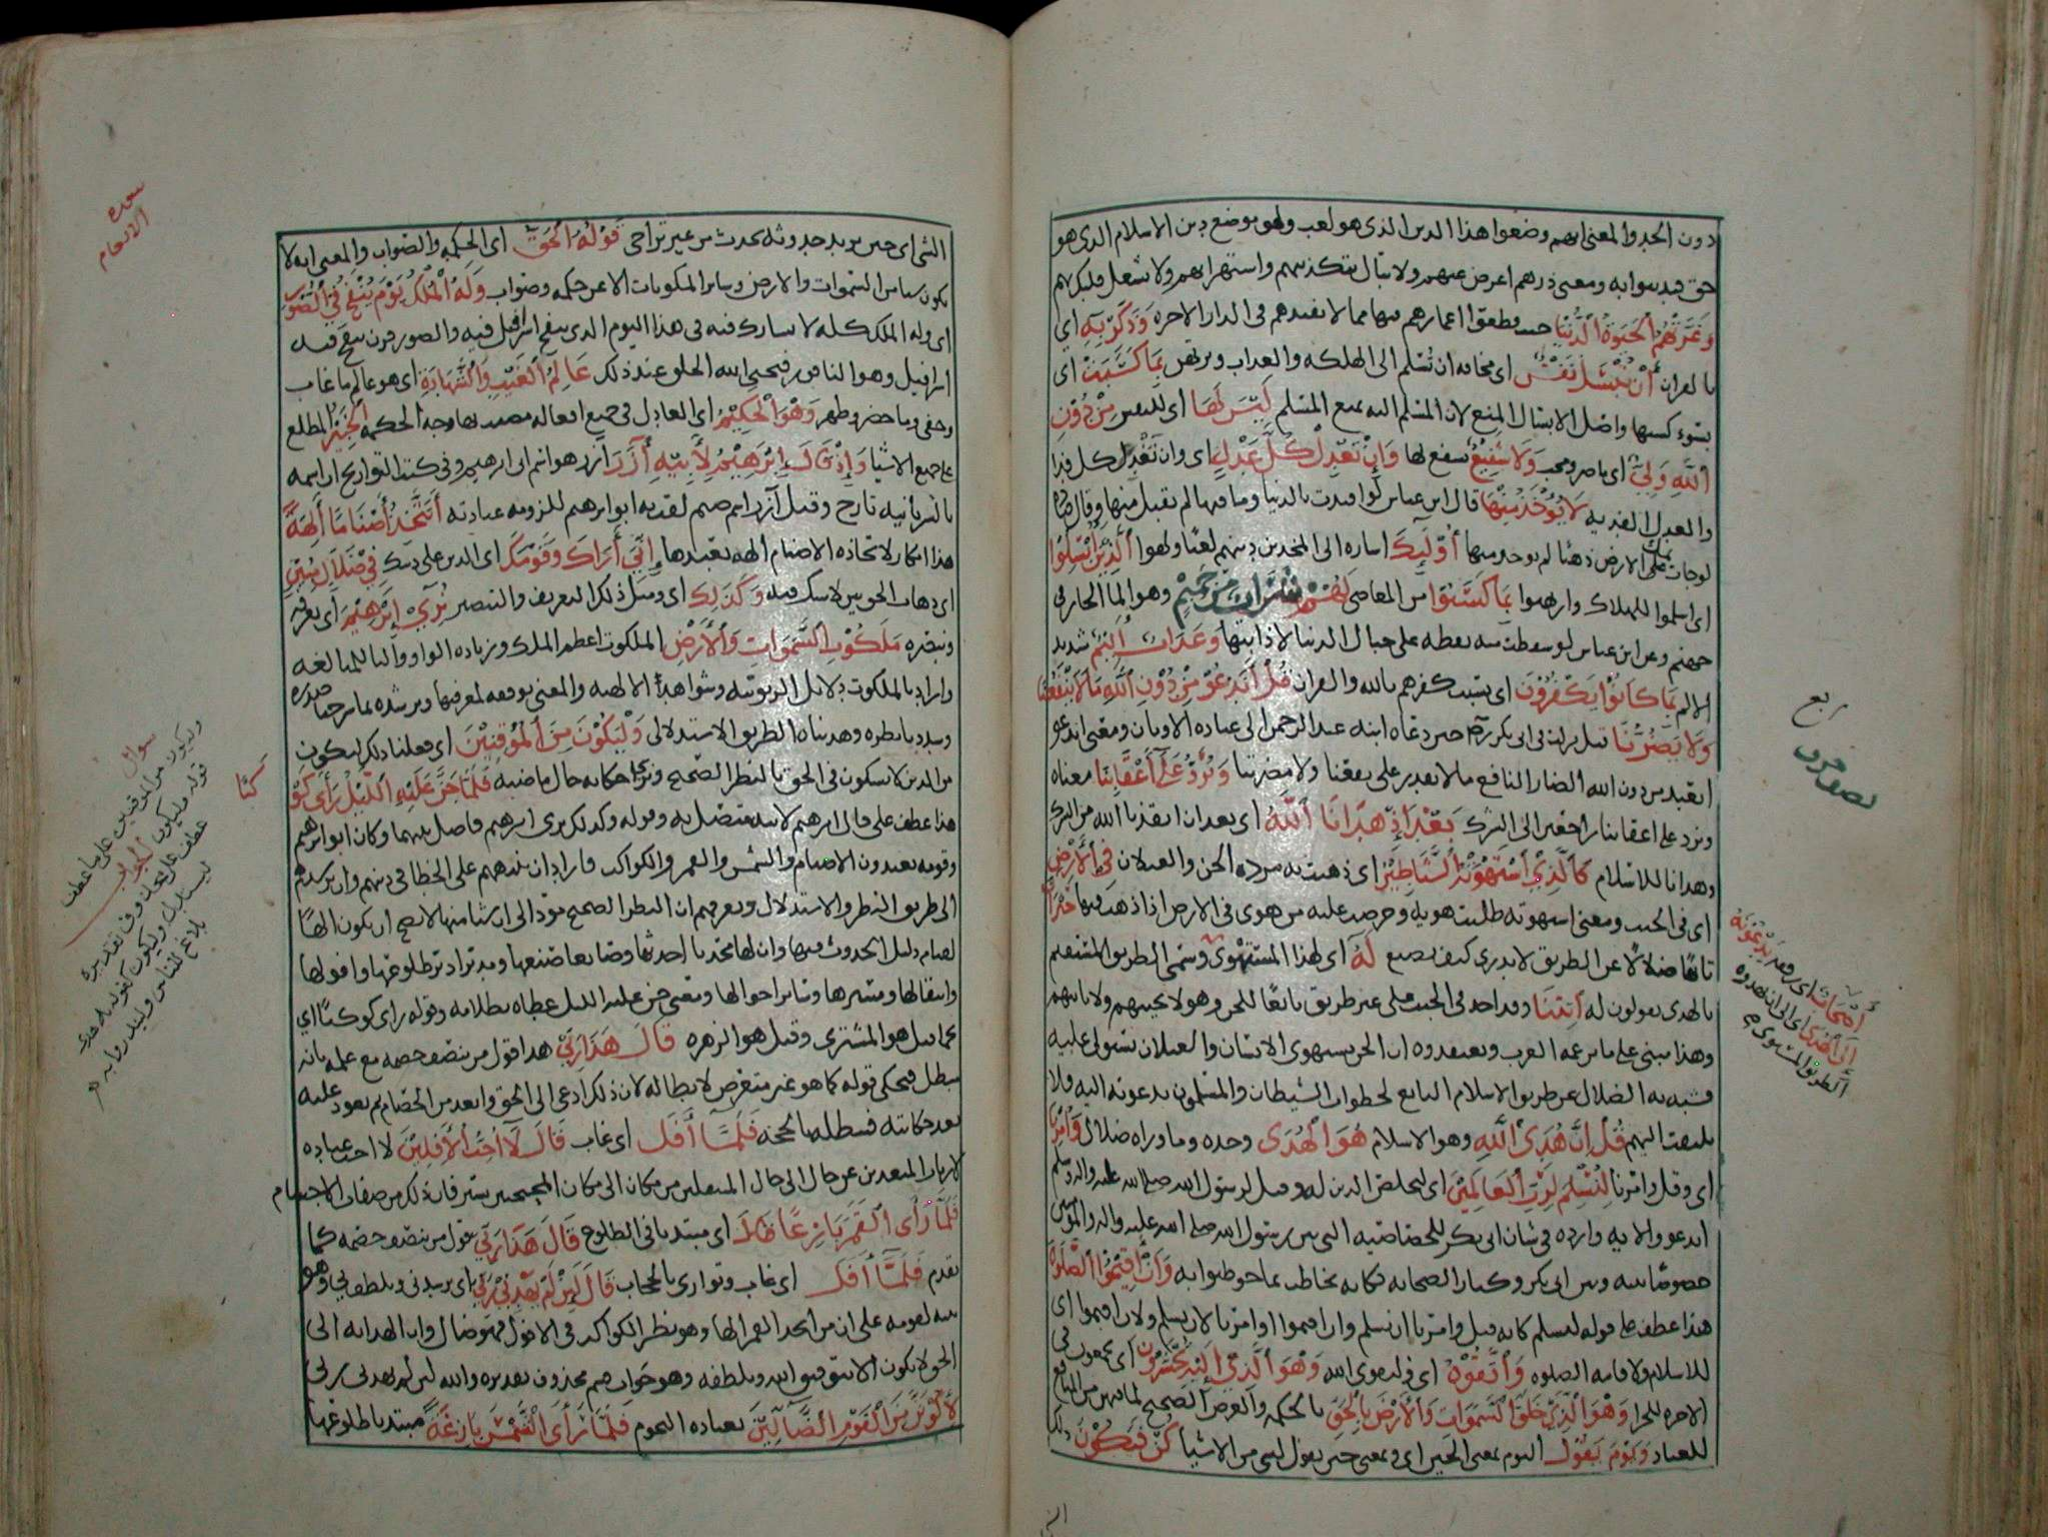 دون الجد والمعنى انهم وضعوا هذا الدين الذي هو لعب ولهو موضع دين الاسلام الذي هو
حق فبدينوا به ومعنى ذرهم اعرض عنهم ولا تبال بتكذيبهم واستهزائهم ولا تشغل قلبك بهم
وَغَرَّتْهُمُ الْحَيَوةُ الدُّنْيَا حيث قطعوا اعمارهم فيها مما لا يفيدهم في الدار الاخره وَذَكِّرْ بِهِ اي
بالقران أَنْ تُبْسَلَ نَفْسٌ اي مخافه ان تسلم الى الهلكه والعذاب وترتهن بِمَا كَسَبَتْ اي
بسوء كسبها واصل الابسال المنع لان المسلم اليه يمنع المسلم لَيْسَ لَهَا اي للنفس مِنْ دُونِ
اللَّهِ وَلِيٌّ اي ناصر ومحب وَلَا شَفِيعٌ يشفع لها وَإِنْ تَعْدِلْ كُلَّ عَدْلٍ اي وان تفد كل فدا
والعدل الفديه لَا يُؤْخَذْ مِنْهَا قال ابن عباس لو افتدت بالدنيا وما فيها لم يقبل منها وقال
لو جات بملئ الارض ذهبا لم يوخذ منها أُولَٰئِكَ اشاره الى المتخذين دينهم لعبا ولهوا الَّذِينَ أُبْسِلُوا
اي اسلموا للهلاك وارتهنوا بِمَا كَسَبُوا من المعاصي لَهُمْ شَرَابٌ مِنْ حَمِيمٍ وهو الما الحار في
جهنم وعن ابن عباس لو سقطت منه نقطه على جبال الدنيا لاذابتها وَعَذَابٌ أَلِيمٌ شديد
الالم بِمَا كَانُوا يَكْفُرُونَ اي بسبب كفرهم بالله والقران قُلْ أَنَدْعُو مِنْ دُونِ اللَّهِ مَا لَا يَنْفَعُنَا
وَلَا يَضُرُّنَا قيل نزلت في ابي بكر حين دعاه ابنه عبد الرحمن الى عباده الاوثان ومعنى اندعو
انعبد من دون الله الضار النافع ما لا يقدر على نفعنا ولا مضرتنا وَنُرَدُّ عَلَىٰ أَعْقَابِنَا معناه
ونرد على اعقابنا راجعين الى الشرك بَعْدَ إِذْ هَدَانَا اللَّهُ اي بعد ان انقذنا الله من الشرك
وهدانا للاسلام كَالَّذِي اسْتَهْوَتْهُ الشَّيَاطِينُ اي ذهبت به مرده الجن والغيلان فِي الْأَرْضِ
اي في الجبت ومعنى استهوته طلبت هويه وحرصت عليه من هوى في الارض اذا ذهب فيها حَيْرَانَ
تائها ضالا عن الطريق لا يدري كيف يصنع لَهُ اي لهذا المستهوى وسمي الطريق المستقيم
بالهدى يقولون له ائْتِنَا وقد اخذ في الجبت على غير طريق تابعا للجن وهو لا يجيبهم ولا ياتيهم
وهذا مبني على ما تزعمه العرب وتعتقدوه ان الجن يستهوي الانسان والغيلان تستولي عليه
فشبه به الضال عن طريق الاسلام التابع لخطوات الشيطان والمسلمون يدعونه اليه فلا
يلتفت اليهم قُلْ إِنَّ هُدَى اللَّهِ وهو الاسلام هُوَ الْهُدَىٰ وحده وما وراه ضلال وَأُمِرْنَا
اي وقل وامرنا لِنُسْلِمَ لِرَبِّ الْعَالَمِينَ اي لنخلص الدين له وقيل لرسول الله صلى الله عليه واله وسلم
اندعو والايه وارده في شان ابي بكر للخصاصيه التي بين رسول الله صلى الله عليه واله والمومنين
خصوصا بينه وبين ابي بكر وكبار الصحابه فكانه يخاطب بما خوطبوا به وَأَنْ أَقِيمُوا الصَّلَاةَ
هذا عطف على قوله لنسلم كانه قيل وامرنا ان نسلم وان اقيموا او امرنا لان نسلم ولان اقيموا اي
للاسلام ولاقامه الصلوه وَاتَّقُوهُ اي في تقوى الله وَهُوَ الَّذِي إِلَيْهِ تُحْشَرُونَ اي تجمعون في
الاخره للجزا وَهُوَ الَّذِي خَلَقَ السَّمَوَاتِ وَالْأَرْضَ بِالْحَقِّ بالحكمه والغرض الصحيح لما فيهن من المنافع
للعباد وَيَوْمَ يَقُولُ اليوم بمعنى الحين اي ومعنى حين يقول لشي من الاشيا كُنْ فَيَكُونُ ذلك
ربع
أَصْحَابٌ اي رفقه يَدْعُونَهُ
إِلَى الْهُدَى اي الى ان يهدوه
الطريق المستوي
الشي اي حين يريد حدوثه يحدث من غير تراخي قَوْلُهُ الْحَقُّ اي الحكمه والصواب والمعنى انه لا
يكون شيا من السموات والارض وساير المكونات الا عن حكمه وصواب وَلَهُ الْمُلْكُ يَوْمَ يُنْفَخُ فِي الصُّورِ
اي وله الملك كله لا يشارك فيه في هذا اليوم الذي ينفخ اسرافيل فيه والصور قرن ينفخ فيه
اسرافيل وهو الناقور فيحيي الله الخلق عند ذلك عَالِمُ الْغَيْبِ وَالشَّهَادَةِ اي هو عالم ما غاب
وخفى وما حضر وظهر وَهُوَ الْحَكِيمُ اي العادل في جميع افعاله مصيب بها وجه الحكمه الْخَبِيرُ المطلع
على جميع الاشيا وَإِذْ قَالَ إِبْرَهِيمُ لِأَبِيهِ آزَرَ ازر هو اسم ابي ابرهيم وفي كتب التواريخ ان اسمه
بالسريانيه تارح وقيل آزر اسم صنم لقب به ابو ابرهيم للزومه عبادته أَتَتَّخِذُ أَصْنَامًا آلِهَةً
هذا انكار لاتخاذه الاصنام الهه يعبدها إِنِّي أَرَاكَ وَقَوْمَكَ اي الذين على دينك فِي ضَلَالٍ مُبِينٍ
اي ذهاب الحق بين لا شك فيه وَكَذَلِكَ اي ومثل ذلك التعريف والتبصير نُرِي إِبْرَهِيمَ اي نعرفه
ونبصره مَلَكُوتَ السَّمَوَاتِ وَالْأَرْضِ الملكوت اعظم الملك وزياده الواو والتا للمبالغه
واراد بالملكوت دلايل الربوبيه وشواهد الالهيه والمعنى نوفقه لمعرفتها ونرشده بما شرحنا صدره
وسددنا نظره وهديناه الطريق الاستدلالي وَلِيَكُونَ مِنَ الْمُوقِنِينَ اي فعلنا ذلك ليكون
من الذين لا يشكون في الحق بالنظر الصحيح ونري حكايه حال ماضيه فَلَمَّا جَنَّ عَلَيْهِ اللَّيْلُ رَأَى كَوْ
كَبًا
هذا عطف على قال ابرهيم لابيه متصل به وقوله وكذلك نري ابرهيم فاصل بينهما وكان ابو ابرهيم
وقومه يعبدون الاصنام والشمس والقمر والكواكب فاراد ان ينبههم على الخطا في دينهم وان يرشدهم
الى طريق النظر والاستدلال ويعرفهم ان النظر الصحيح مودّ الى ان شيا منها لا يصح ان يكون الها
لقيام دليل الحدوث فيها وان لها محدثا احدثها وصانعا صنعها ومدبرا دبر طلوعها وافولها
وانتقالها ومسيرها وساير احوالها ومعنى جن عليه الليل غطاه بظلامه وقوله راى كوكبا اي
نجما قيل هو المشتري وقيل هو الزهره قَالَ هَذَا رَبِّي هذا قول من ينصف خصمه مع علمه بانه
مبطل فيحكي قوله كما هو غير متعرض لابطاله لان ذلك ادعى الى الحق وابعد من الخصام ثم يعود عليه
بعد حكايته فيبطله بالحجه فَلَمَّا أَفَلَ اي غاب قَالَ لَا أُحِبُّ الْآفِلِينَ لا احب عباده
الارباب المتغيرين عن حال الى حال المنتقلين من مكان الى مكان المحتجبين بستر فان ذلك من صفات الاجسام
فَلَمَّا رَأَى الْقَمَرَ بَازِغًا اي مبتديا في الطلوع قَالَ هَذَا رَبِّي يقول من ينصف خصمه كما
تقدم فَلَمَّا أَفَلَ اي غاب وتوارى بالحجاب قَالَ لَئِنْ لَمْ يَهْدِنِي رَبِّي اي يرشدني ويلطف بي وهو
تنبيه لقومه على ان من اتخذ القمر الها وهو نظير الكواكب في الافول فهو ضال وان الهدايه الى
الحق لا يكون الا بتوفيق الله ولطفه وهو جواب قسم محذوف تقديره والله لئن لم يهدني ربي
لَأَكُونَنَّ مِنَ الْقَوْمِ الضَّالِّينَ بعباده النجوم فَلَمَّا رَأَى الشَّمْسَ بَازِغَةً مبتديا طلوعها
سوره
الانعام
سوال
وليكون من الموقنين على ما عطف
قوله وليكون الجواب